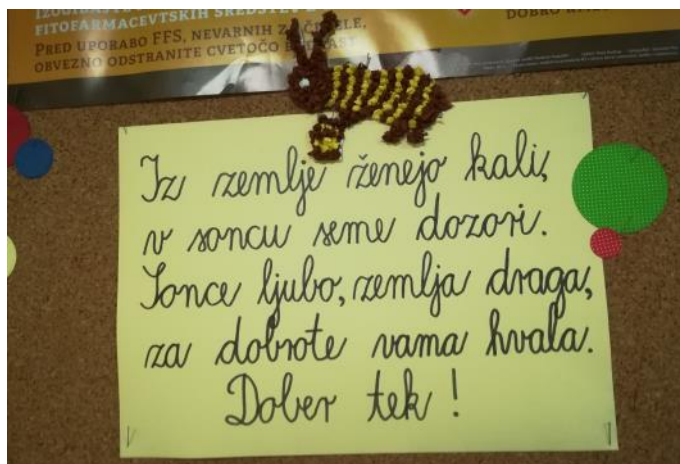 FITOFARMACEVTSKIH SREDSTEV
PRED UPORABO FFS, NEVARNIH ZA
OBVEZNO ODSTRANITE CVETOČO
DOBRO
Iz zemlje ženejo kali,
v soncu seme dozori.
Sonce ljubo, zemlja draga,
za dobrote vama hvala.
Dober tek!